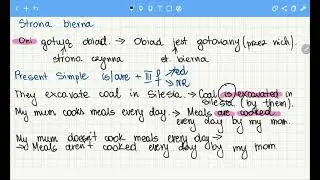 Strona bierna
Oni gotują obiad. → Obiad jest gotowany (przez nich).
strona czynna st. bierna
Present Simple is/are + III f → ed
→ nr
They excavate coal in Silesia. → Coal is excavated in
Silesia (by them).
My mum cooks meals every day. → Meals are cooked
every day by my mom.
My mum doesn't cook meals every day →
→ Meals aren't cooked every day by my mom